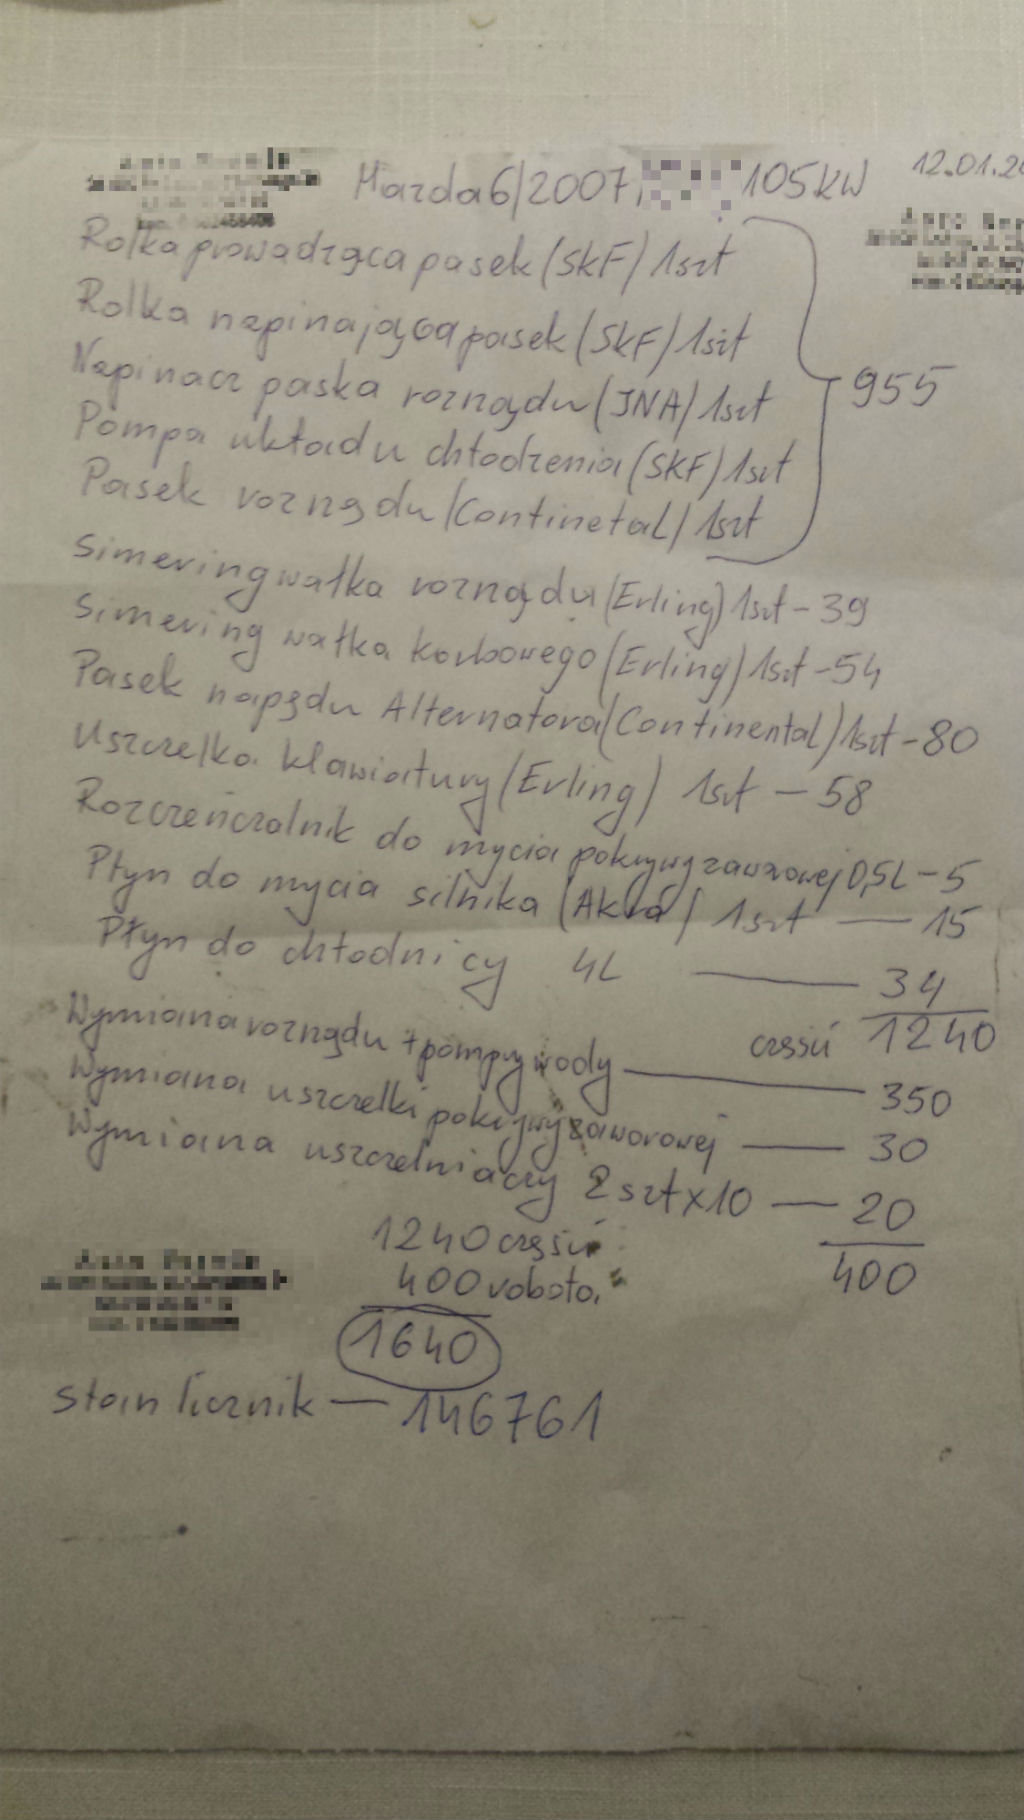 Mazda6/2007, 105kW
12.01.20
Rolka prowadząca pasek (SKF) 1szt
Rolka napinająca pasek (SKF) 1szt
Napinacz paska rozrządu (INA) 1szt
955
Pompa układu chłodzenia (SKF) 1szt
Pasek rozrządu (Continetal) 1szt
Simering wałka rozrządu (Erling) 1szt - 39
Simering wałka korbowego (Erling) 1szt - 54
Pasek napędu Alternatora (Continental) 1szt - 80
Uszczelka klawiatury (Erling) 1szt - 58
Rozczeńczalnik do mycia pokrywy zaworowej 0,5L - 5
Płyn do mycia silnika (Akra) 1szt — 15
Płyn do chłodnicy 4L — 34
części 1240
Wymiana rozrządu + pompy wody — 350
Wymiana uszczelki pokrywy zaworowej — 30
Wymiana uszczelniaczy 2szt x 10 — 20
400
1240 części
400 robota
1640
stan licznik — 146761